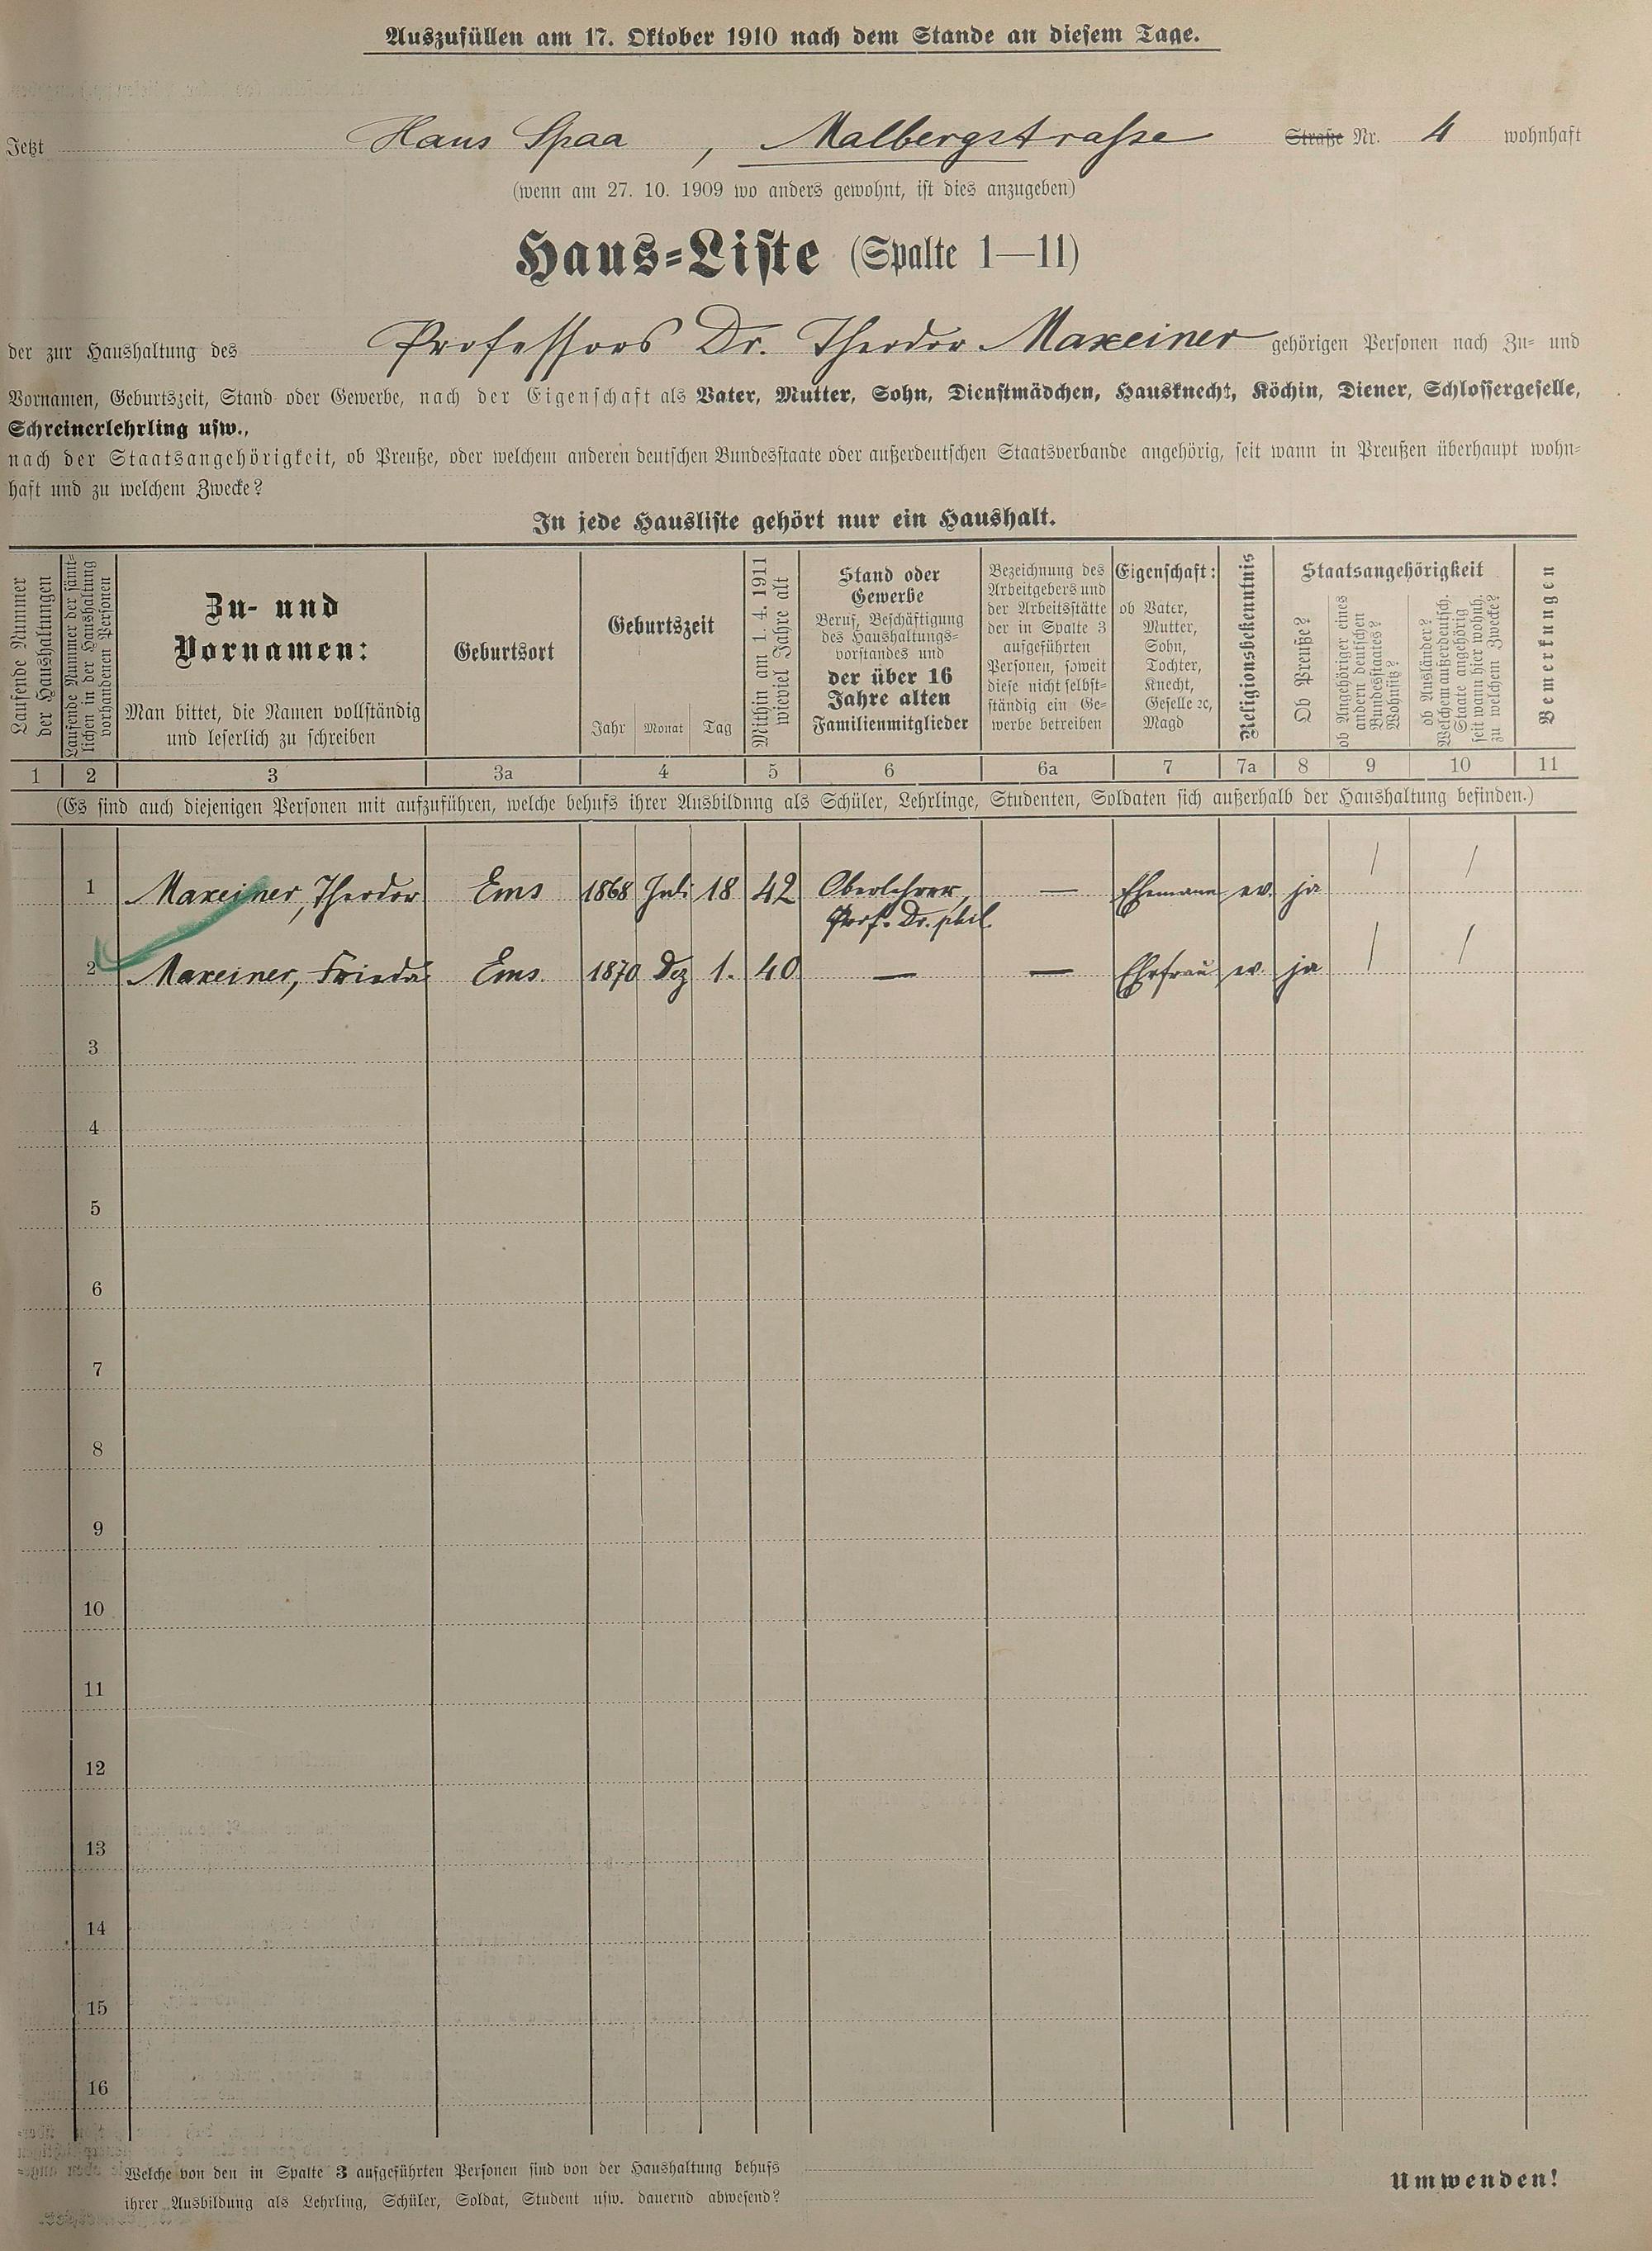 Auszufüllen am 17. Oktober 1910 nach dem Stande an diesem Tage.
Jetzt Haus Spaa, Malbergstraße Straße Nr. 4 wohnhaft
(wenn am 27. 10. 1909 wo anders gewohnt, ist dies anzugeben)
Haus=Liste (Spalte 1—11)
der zur Haushaltung des Professors Dr. Theodor Maxeiner gehörigen Personen nach Zu= und
Vornamen, Geburtszeit, Stand oder Gewerbe, nach der Eigenschaft als Vater, Mutter, Sohn, Dienstmädchen, Hausknecht, Köchin, Diener, Schlossergeselle,
Schreinerlehrling usw.,
nach der Staatsangehörigkeit, ob Preuße, oder welchem anderen deutschen Bundesstaate oder außerdeutschen Staatsverbande angehörig, seit wann in Preußen überhaupt wohn=
haft und zu welchem Zwecke?
In jede Hausliste gehört nur ein Haushalt.
Laufende Nummer
der Haushaltungen
Laufende Nummer der sämt=
lichen in der Haushaltung
vorhandenen Personen
Zu- und
Vornamen:
Man bittet, die Namen vollständig
und leserlich zu schreiben
Geburtsort
Geburtszeit
Jahr Monat Tag
Mithin am 1. 4. 1911
wieviel Jahre alt
Stand oder
Gewerbe
Beruf, Beschäftigung
des Haushaltungs=
vorstandes und
der über 16
Jahre alten
Familienmitglieder
Bezeichnung des
Arbeitgebers und
der Arbeitsstätte
der in Spalte 3
aufgeführten
Personen, soweit
diese nicht selbst=
ständig ein Ge=
werbe betreiben
Eigenschaft:
ob Vater,
Mutter,
Sohn,
Tochter,
Knecht,
Geselle ꝛc,
Magd
Religionsbekenntnis
Staatsangehörigkeit
Ob Preuße?
ob Angehöriger eines
andern deutschen
Bundesstaates?
Wohnsitz?
ob Ausländer?
Welchem außerdeutsch.
Staate angehörig
seit wann hier wohnh.
zu welchem Zwecke?
Bemerkungen
1 2 3 3a 4 5 6 6a 7 7a 8 9 10 11
(Es sind auch diejenigen Personen mit aufzuführen, welche behufs ihrer Ausbildung als Schüler, Lehrlinge, Studenten, Soldaten sich außerhalb der Haushaltung befinden.)
1 Maxeiner, Theodor Ems 1868 Juli 18 42 Oberlehrer, — Ehemann ev. ja / /
Prof. Dr. phil.
2 Maxeiner, Frieda Ems. 1870 Dez 1. 40 — — Ehefrau ev. ja / /
3
4
5
6
7
8
9
10
11
12
13
14
15
16
Welche von den in Spalte 3 aufgeführten Personen sind von der Haushaltung behufs
ihrer Ausbildung als Lehrling, Schüler, Soldat, Student usw. dauernd abwesend?
Umwenden!